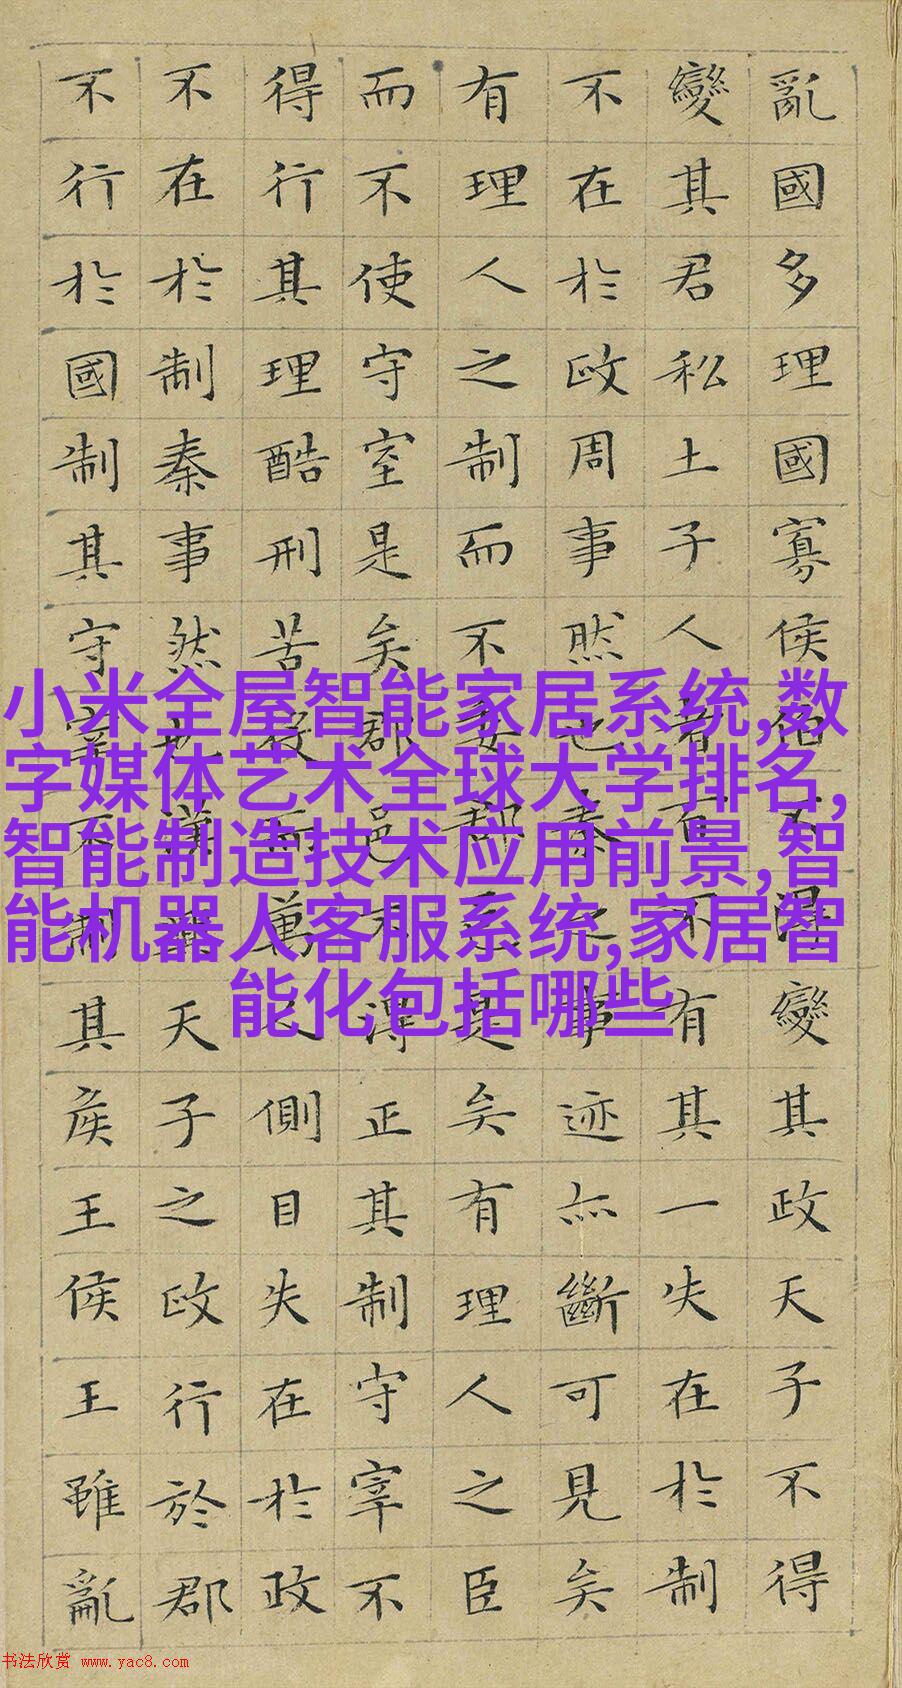 亂國多理國寡侯伯不得變其政天子不得
變其君私土子人者百不有其一失在於制
不在於政周事然也秦之事迹亦斷可見矣
有理人之制而不委郡邑是矣有理人之臣
而不使守宰是矣郡邑不得正其制守宰不
得行其理酷刑苦役而萬人側目失在於政
不在於制秦事然也漢興天子之政行於郡
不行於國制其守宰不制其侯王侯王雖亂
小米全屋智能家居系统,数
字媒体艺术全球大学排名,
智能制造技术应用前景,智
能机器人客服系统,家居智
能化包括哪些
书法欣赏 www.yac8.com